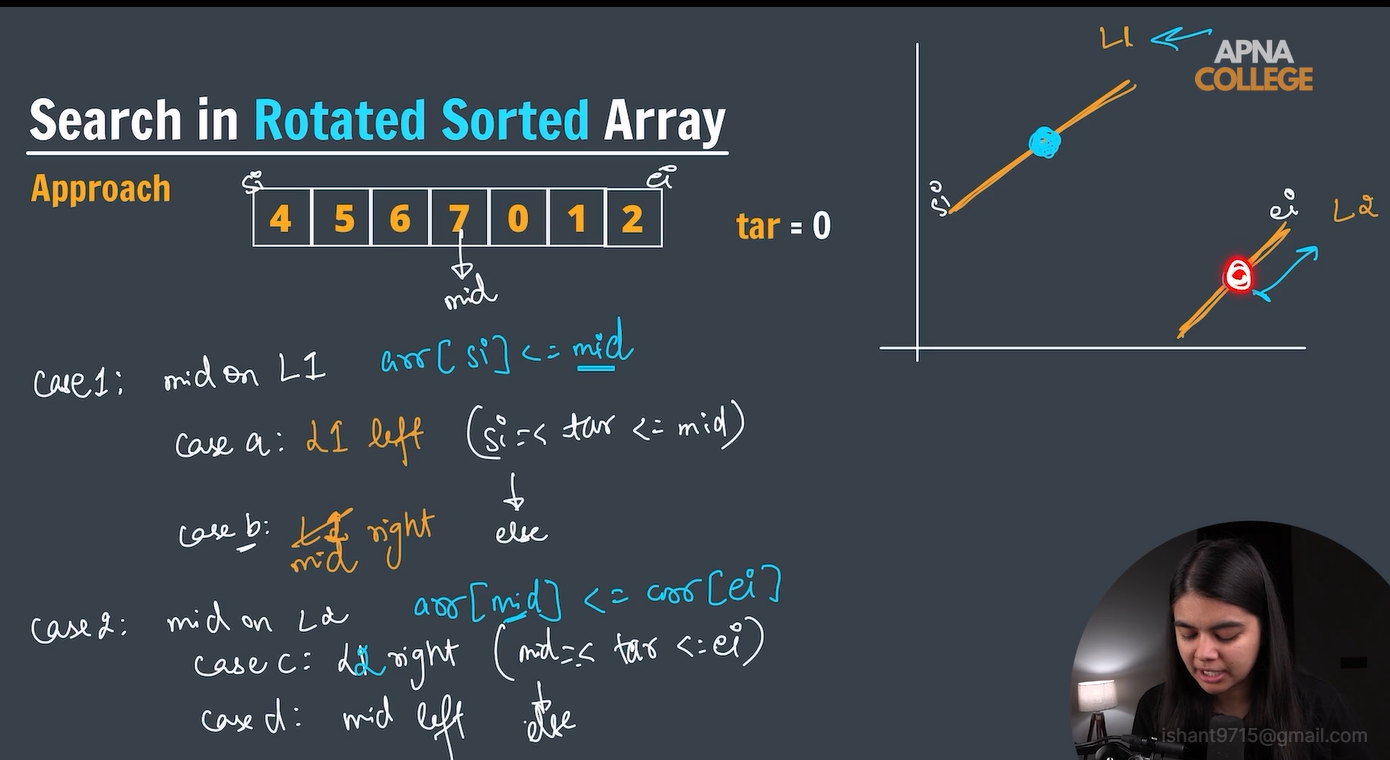 L1
APNA
COLLEGE
Search in Rotated Sorted Array
Approach
si
ei
4 5 6 7 0 1 2
tar = 0
mid
si
ei
L2
case1: mid on L1 arr[si] <= mid
case a: L1 left (si =< tar <= mid)
case b: L1 right else
mid
case2: mid on L2 arr[mid] <= arr[ei]
case c: L2 right (mid =< tar <= ei)
case d: mid left else
ishant9715@gmail.com